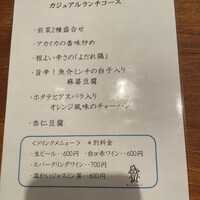 カジュアルランチコース
・前菜2種盛合せ
・アカイカの香味炒め
・程よい辛さの「よだれ鶏」
・旨辛!魚介ミンチの白子入り
麻婆豆腐
・ホタテとアスパラ入り
オレンジ風味のチャーハン
・杏仁豆腐
<ドリンクメニュー> *別料金
・生ビール・・600円 ・白or赤ワイン・・600円
・スパークリングワイン・・700円
・温かいジャスミン茶・・600円